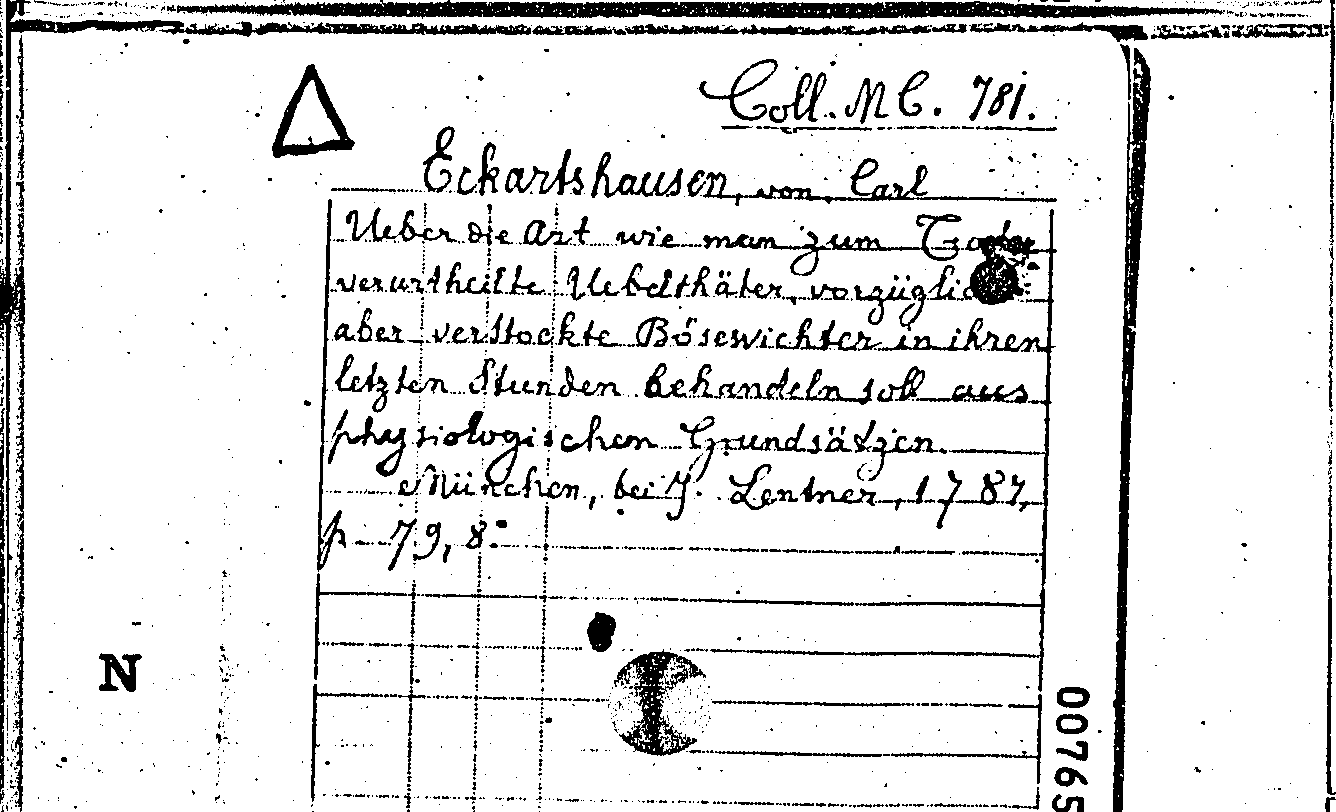 Coll. MC. 781.
Eckartshausen, von, Carl
Ueber die Art wie man zum Tode
verurtheilte Uebelthäter, vorzüglich
aber verstockte Bösewichter in ihren
letzten Stunden behandeln soll aus
physiologischen Grundsätzen.
München, bei J. Lentner, 1787,
p. 79, 8º
N
00765